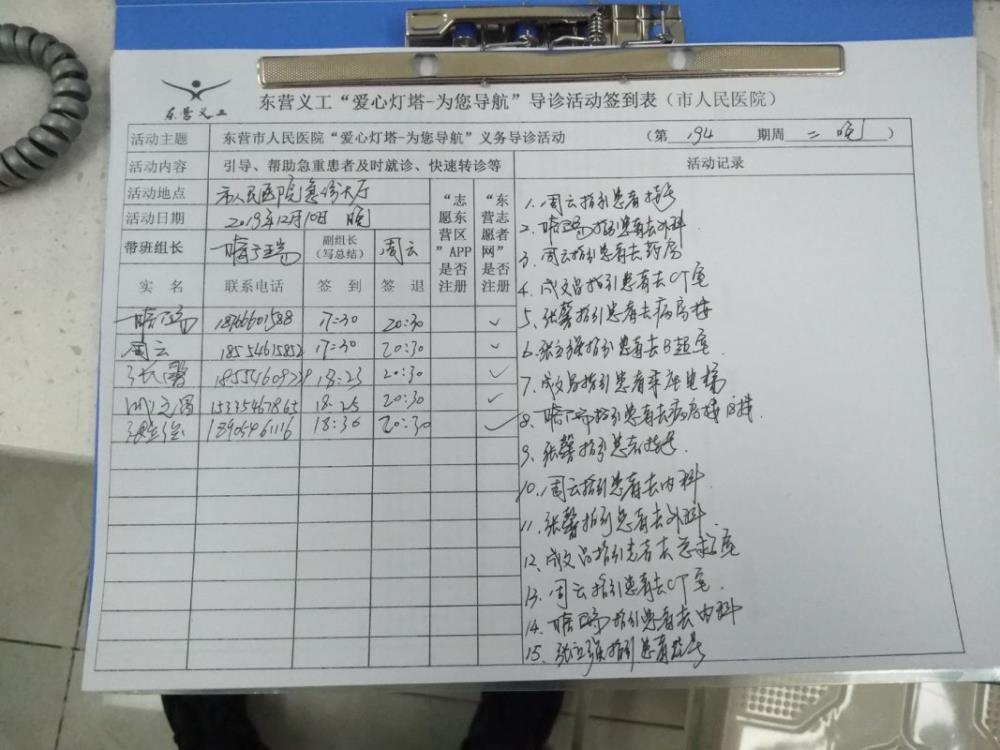 东营义工
东营义工“爱心灯塔-为您导航”导诊活动签到表（市人民医院）
活动主题 东营市人民医院“爱心灯塔-为您导航”义务导诊活动 （第 194 期周 二 晚）
活动内容 引导、帮助急重患者及时就诊、快速转诊等 活动记录
活动地点 市人民医院急诊大厅
活动日期 2019年12月10日 晚
带班组长 副组长（写总结） 周云
“志愿东营区”APP是否注册
“东营志愿者网”是否注册
实名 联系电话 签到 签退
18766601588 17:30 20:30 ✓
周云 18554615852 17:30 20:30 ✓
张馨 18:23 20:30 ✓
成文昌 15335467865 18:25 20:30 ✓
张立强 18:30 20:30 ✓
1、周云指引患者挂号
2、指引患者去外科
3、周云指引患者去药房
4、成文昌指引患者去CT室
5、张馨指引患者去病房楼
6、张立强指引患者去B超室
7、成文昌指引患者乘座电梯
8、指引患者去病房楼
9、张馨指引患者挂号
10、周云指引患者去内科
11、张馨指引患者去外科
12、成文昌指引患者去
13、周云指引患者去CT室
14、指引患者去内科
15、张立强指引患者挂号